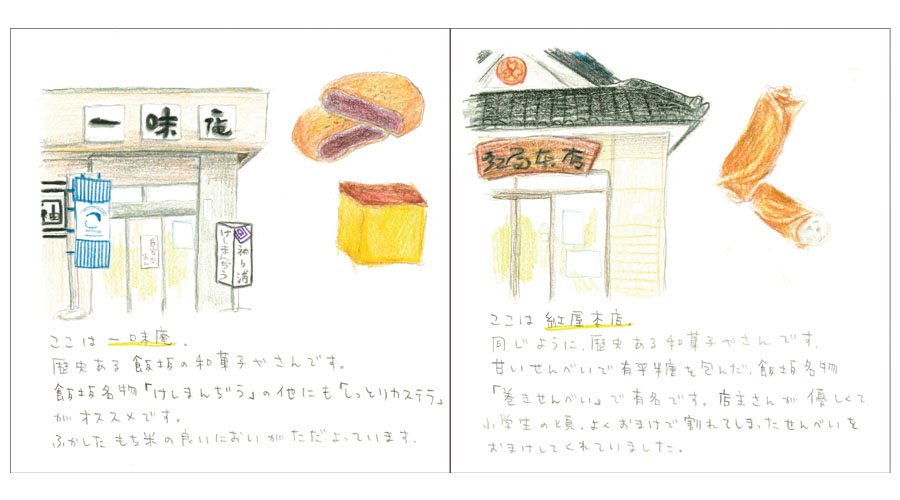 一味庵
けしまんぢう
ここは 一味庵.
歴史ある 飯坂の和菓子やさんです。
飯坂名物「けしまんぢう」の他にも「しっとりカステラ」
がオススメです。
ふかした もち米の良いにおいがただよっています.
紅屋本店
ここは 紅屋本店.
同じように、歴史ある和菓子やさんです.
甘いせんべいで有平糖を包んだ、飯坂名物
「巻きせんべい」で有名です。店主さんが優しくて
小学生の頃、よくおまけで割れてしまったせんべいを
おまけしてくれていました。